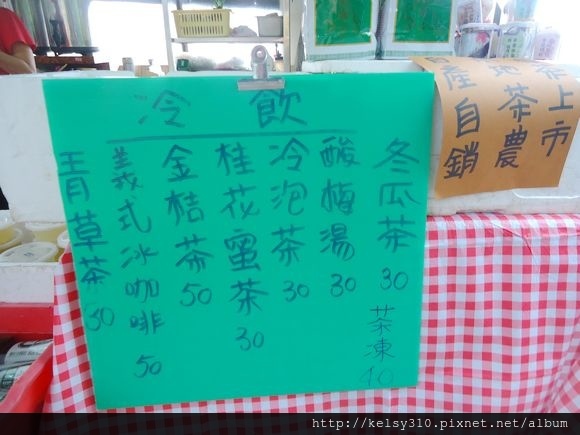 冷飲
冬瓜茶 30
茶凍 10
酸梅湯 30
冷泡茶 30
桂花蜜茶 30
金桔茶 50
義式冰咖啡 50
青草茶 30
上市
地茶農
產自銷
http://kelsy310.pixnet.net/album